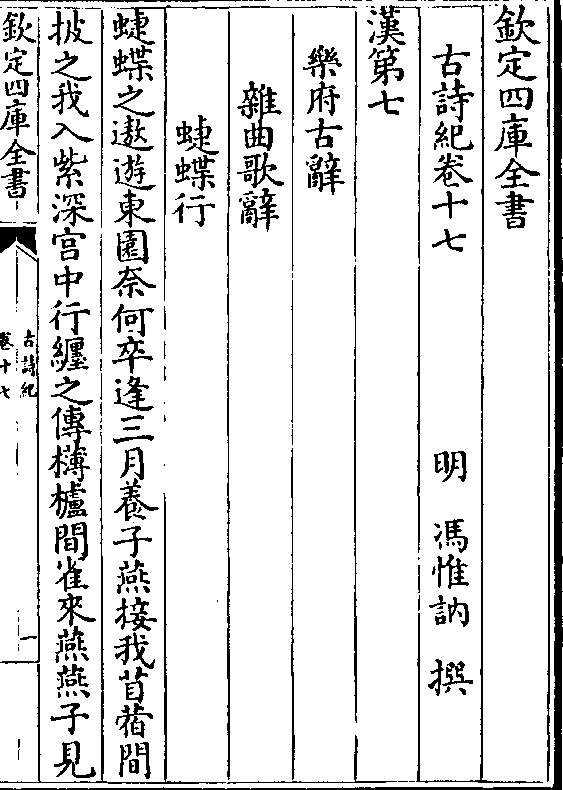 欽定四庫全書
古詩紀卷十七 明 馮惟訥 撰
漢第七
樂府古辭
雜曲歌辭
蜨蝶行
蜨蝶之遨遊東園奈何卒逢三月養子燕接我苜蓿間
披之我入紫深宫中行纒之傳欂櫨間雀來燕燕子見
欽定四庫全書
古詩紀
卷十七
一